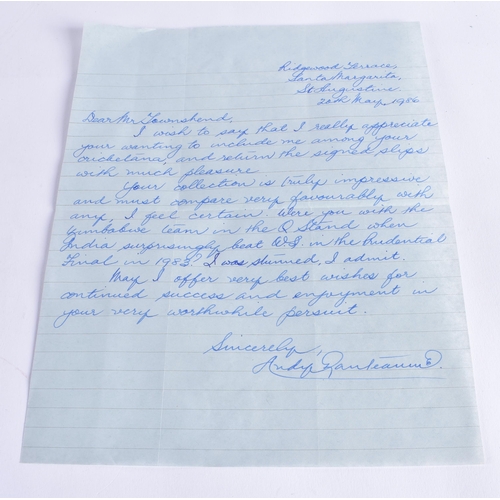 Ridgewood Terrace,
Santa Margarita,
St Augustine
20th May, 1986
Dear Mr Townshend,
I wish to say that I really appreciate
your wanting to include me among your
cricketana, and return the signed slips
with much pleasure.
Your collection is truly impressive
and must compare very favourably with
any, I feel certain. Were you with the
Zimbabwe team in the Q Stand when
India surprisingly beat W.I. in the Prudential
Final in 1983? I was stunned, I admit.
May I offer very best wishes for
continued success and enjoyment in
your very worthwhile persuit.
Sincerely,
Andy Ganteaume